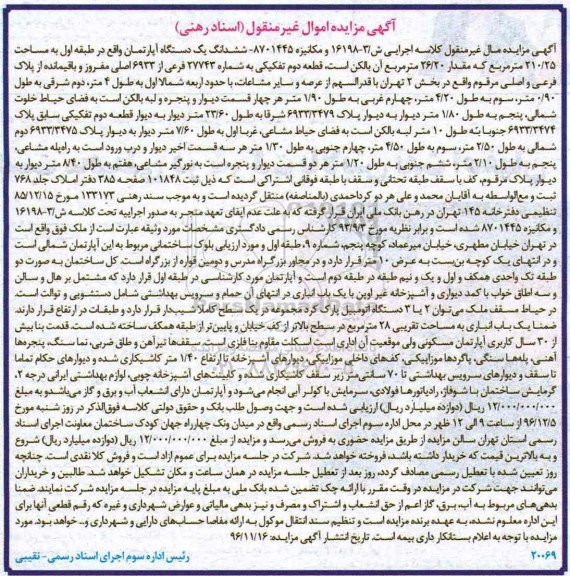 آگهی مزایده اموال غیرمنقول (اسناد رهنی)
آگهی مزایده مال غیرمنقول کلاسه اجرایی ش/۱۶۱۹۸-۳ و مکانیزه ۸۷۰۱۴۴۵- ششدانگ یک دستگاه آپارتمان واقع در طبقه اول به مساحت
۲۱۰/۲۵ مترمربع که مقدار ۲۶/۲۰ مترمربع آن بالکن است، قطعه دوم تفکیکی به شماره ۲۷۷۴۳ فرعی از ۶۹۳۳ اصلی مفروز و باقیمانده از پلاک
فرعی و اصلی مرقوم واقع در بخش ۲ تهران با قدرالسهم از عرصه و سایر مشاعات، با حدود اربعه شمالا اول به طول ۴ متر، دوم شرقی به طول
۰/۹۰ متر، سوم به طول ۴/۲۰ متر، چهارم غربی به طول ۱/۹۰ متر هر چهار قسمت دیوار و پنجره و لبه بالکن است به فضای حیاط خلوت
شمالی، پنجم به طول ۱/۸۰ متر دیوار به دیوار پلاک ۶۹۳۳/۳۴۷۹ شرقا به طول ۲۳/۶۰ متر دیوار به دیوار قطعه دوم تفکیکی سابق پلاک
۶۹۳۳/۳۴۷۴ جنوبا به طول ۱۰ متر لبه بالکن است به فضای حیاط مشاعی، غربا اول به طول ۷/۶۰ متر دیوار به دیوار پلاک ۶۹۳۳/۳۴۷۵ دوم
شمالی به طول ۲/۵۰ متر، سوم به طول ۴/۵۰ متر، چهارم جنوبی به طول ۱/۳۰ متر هر سه قسمت اخیر دیوار و درب ورود است به راه‌پله مشاعی،
پنجم به طول ۲/۱۰ متر، ششم جنوبی به طول ۱/۲۰ متر هر دو قسمت دیوار و پنجره است به نورگیر مشاعی، هفتم به طول ۸/۴۰ متر دیوار به
دیوار پلاک مرقوم، کف با سقف طبقه تحتانی و سقف با طبقه فوقانی اشتراکی است که ذیل ثبت ۱۰۱۸۴۸ صفحه ۳۸۵ دفتر املاک جلد ۷۶۸
ثبت و مع‌الواسطه به آقایان محمد و علی هر دو کرداحمدی (بالمناصفه) منتقل گردیده است و به موجب سند رهنی ۱۳۳۱۷۳ مورخ ۸۵/۱۲/۱۵
تنظیمی دفترخانه ۱۴۵ تهران در رهن بانک ملی ایران قرار گرفته که به علت عدم ایفای تعهد منجر به صدور اجراییه تحت کلاسه ش/۱۶۱۹۸-۳
و مکانیزه ۸۷۰۱۴۴۵ شده است و برابر نظریه مورخ ۹۳/۹۳ کارشناس رسمی دادگستری مشخصات مورد وثیقه عبارت است از ملک فوق واقع است
در تهران خیابان مطهری، خیابان میرعماد، کوچه پنجم، شماره ۹، طبقه اول و مورد ارزیابی بلوک ساختمانی مربوط به این آپارتمان شمالی است
و در انتهای یک کوچه بن‌بست به عرض ۱۰ متر قرار دارد و در مجاور بزرگراه مدرس و دومین قواره از بزرگراه است. کل ساختمان به صورت دو
طبقه تک واحدی همکف و اول و یک و نیم طبقه در طبقه دوم است و آپارتمان مورد کارشناسی در طبقه اول قرار دارد که مشتمل بر هال و سالن
و سه اطاق خواب با کمد دیواری و آشپزخانه غیر اوپن با یک باب انباری در انتهای آن حمام و سرویس بهداشتی شامل دستشویی و توالت است.
در حیاط مسقف ملک می‌توان ۲ یا ۳ دستگاه اتومبیل پارک کرد مجموعه در یک سطح کاملا شیب‌دار قرار دارد و طبقات در ارتفاع قرار دارند.
ضمنا یک باب انباری به مساحت تقریبی ۲۸ مترمربع در سطح بالاتر از کف خیابان و پایین‌تر از طبقه همکف ساخته شده است. قدمت بنا بیش
از ۳۰ سال کاربری آپارتمان مسکونی ولی موقعیت آن اداری است اسکلت مقاوم بنا فلزی است سقفها تیرآهن و طاق ضربی، نما سنگ، پنجره‌ها
آهنی، پله‌ها سنگی، پاگردها موزاییکی، کف‌های داخلی موزاییکی، دیوارهای آشپزخانه تا ارتفاع ۱/۴۰ متر کاشیکاری شده و دیوارهای حمام تماما
تا سقف و دیوارهای سرویس بهداشتی تا ۷۰ سانتی‌متر زیر سقف کاشیکاری شده و کابینت‌های آشپزخانه چوبی، لوازم بهداشتی ایرانی درجه ۲،
گرمایش ساختمان با شوفاژ، رادیاتورها فولادی، سرمایش با کولر آبی انجام می‌شود و آپارتمان دارای انشعاب آب و برق و گاز می‌باشد و به مبلغ
۱۲/۰۰۰/۰۰۰/۰۰۰ ریال (دوازده میلیارد ریال) ارزیابی شده است و جهت وصول طلب بانک و حقوق دولتی کلاسه فوق‌الذکر در روز شنبه مورخ
۹۶/۱۲/۵ از ساعت ۹ الی ۱۲ ظهر در محل اداره سوم اجرای اسناد رسمی واقع در میدان ونک چهارراه جهان کودک ساختمان معاونت اجرای اسناد
رسمی استان تهران سالن مزایده از طریق مزایده حضوری به فروش می‌رسد و مزایده از مبلغ ۱۲/۰۰۰/۰۰۰/۰۰۰ ریال (دوازده میلیارد ریال) شروع
و به بالاترین قیمت که خریدار داشته باشد، فروخته خواهد شد. شرکت در جلسه مزایده برای عموم آزاد است و فروش کلا نقدی است. چنانچه
روز تعیین شده با تعطیل رسمی مصادف گردد، روز بعد از تعطیل جلسه مزایده در همان ساعت و مکان تشکیل خواهد شد. طالبین و خریداران
می‌توانند جهت شرکت در مزایده در وقت مقرر با ارائه چک تضمین شده بانک ملی به مبلغ پایه مزایده در جلسه مزایده شرکت نمایند. ضمنا
بدهی‌های مربوط به آب، برق، گاز اعم از حق انشعاب و اشتراک و مصرف و نیز بدهی مالیاتی و عوارض شهرداری و غیره که رقم قطعی آنها برای
این اداره معلوم نشده، به عهده برنده مزایده است و تنظیم سند انتقال موکول به ارائه مفاصا حساب‌های دارایی و شهرداری و... خواهد بود. مورد
مزایده با توجه به اعلام بستانکار دارای بیمه است. تاریخ انتشار آگهی مزایده: ۹۶/۱۱/۱۶
رئیس اداره سوم اجرای اسناد رسمی- نقیبی
۲۰۰۶۹